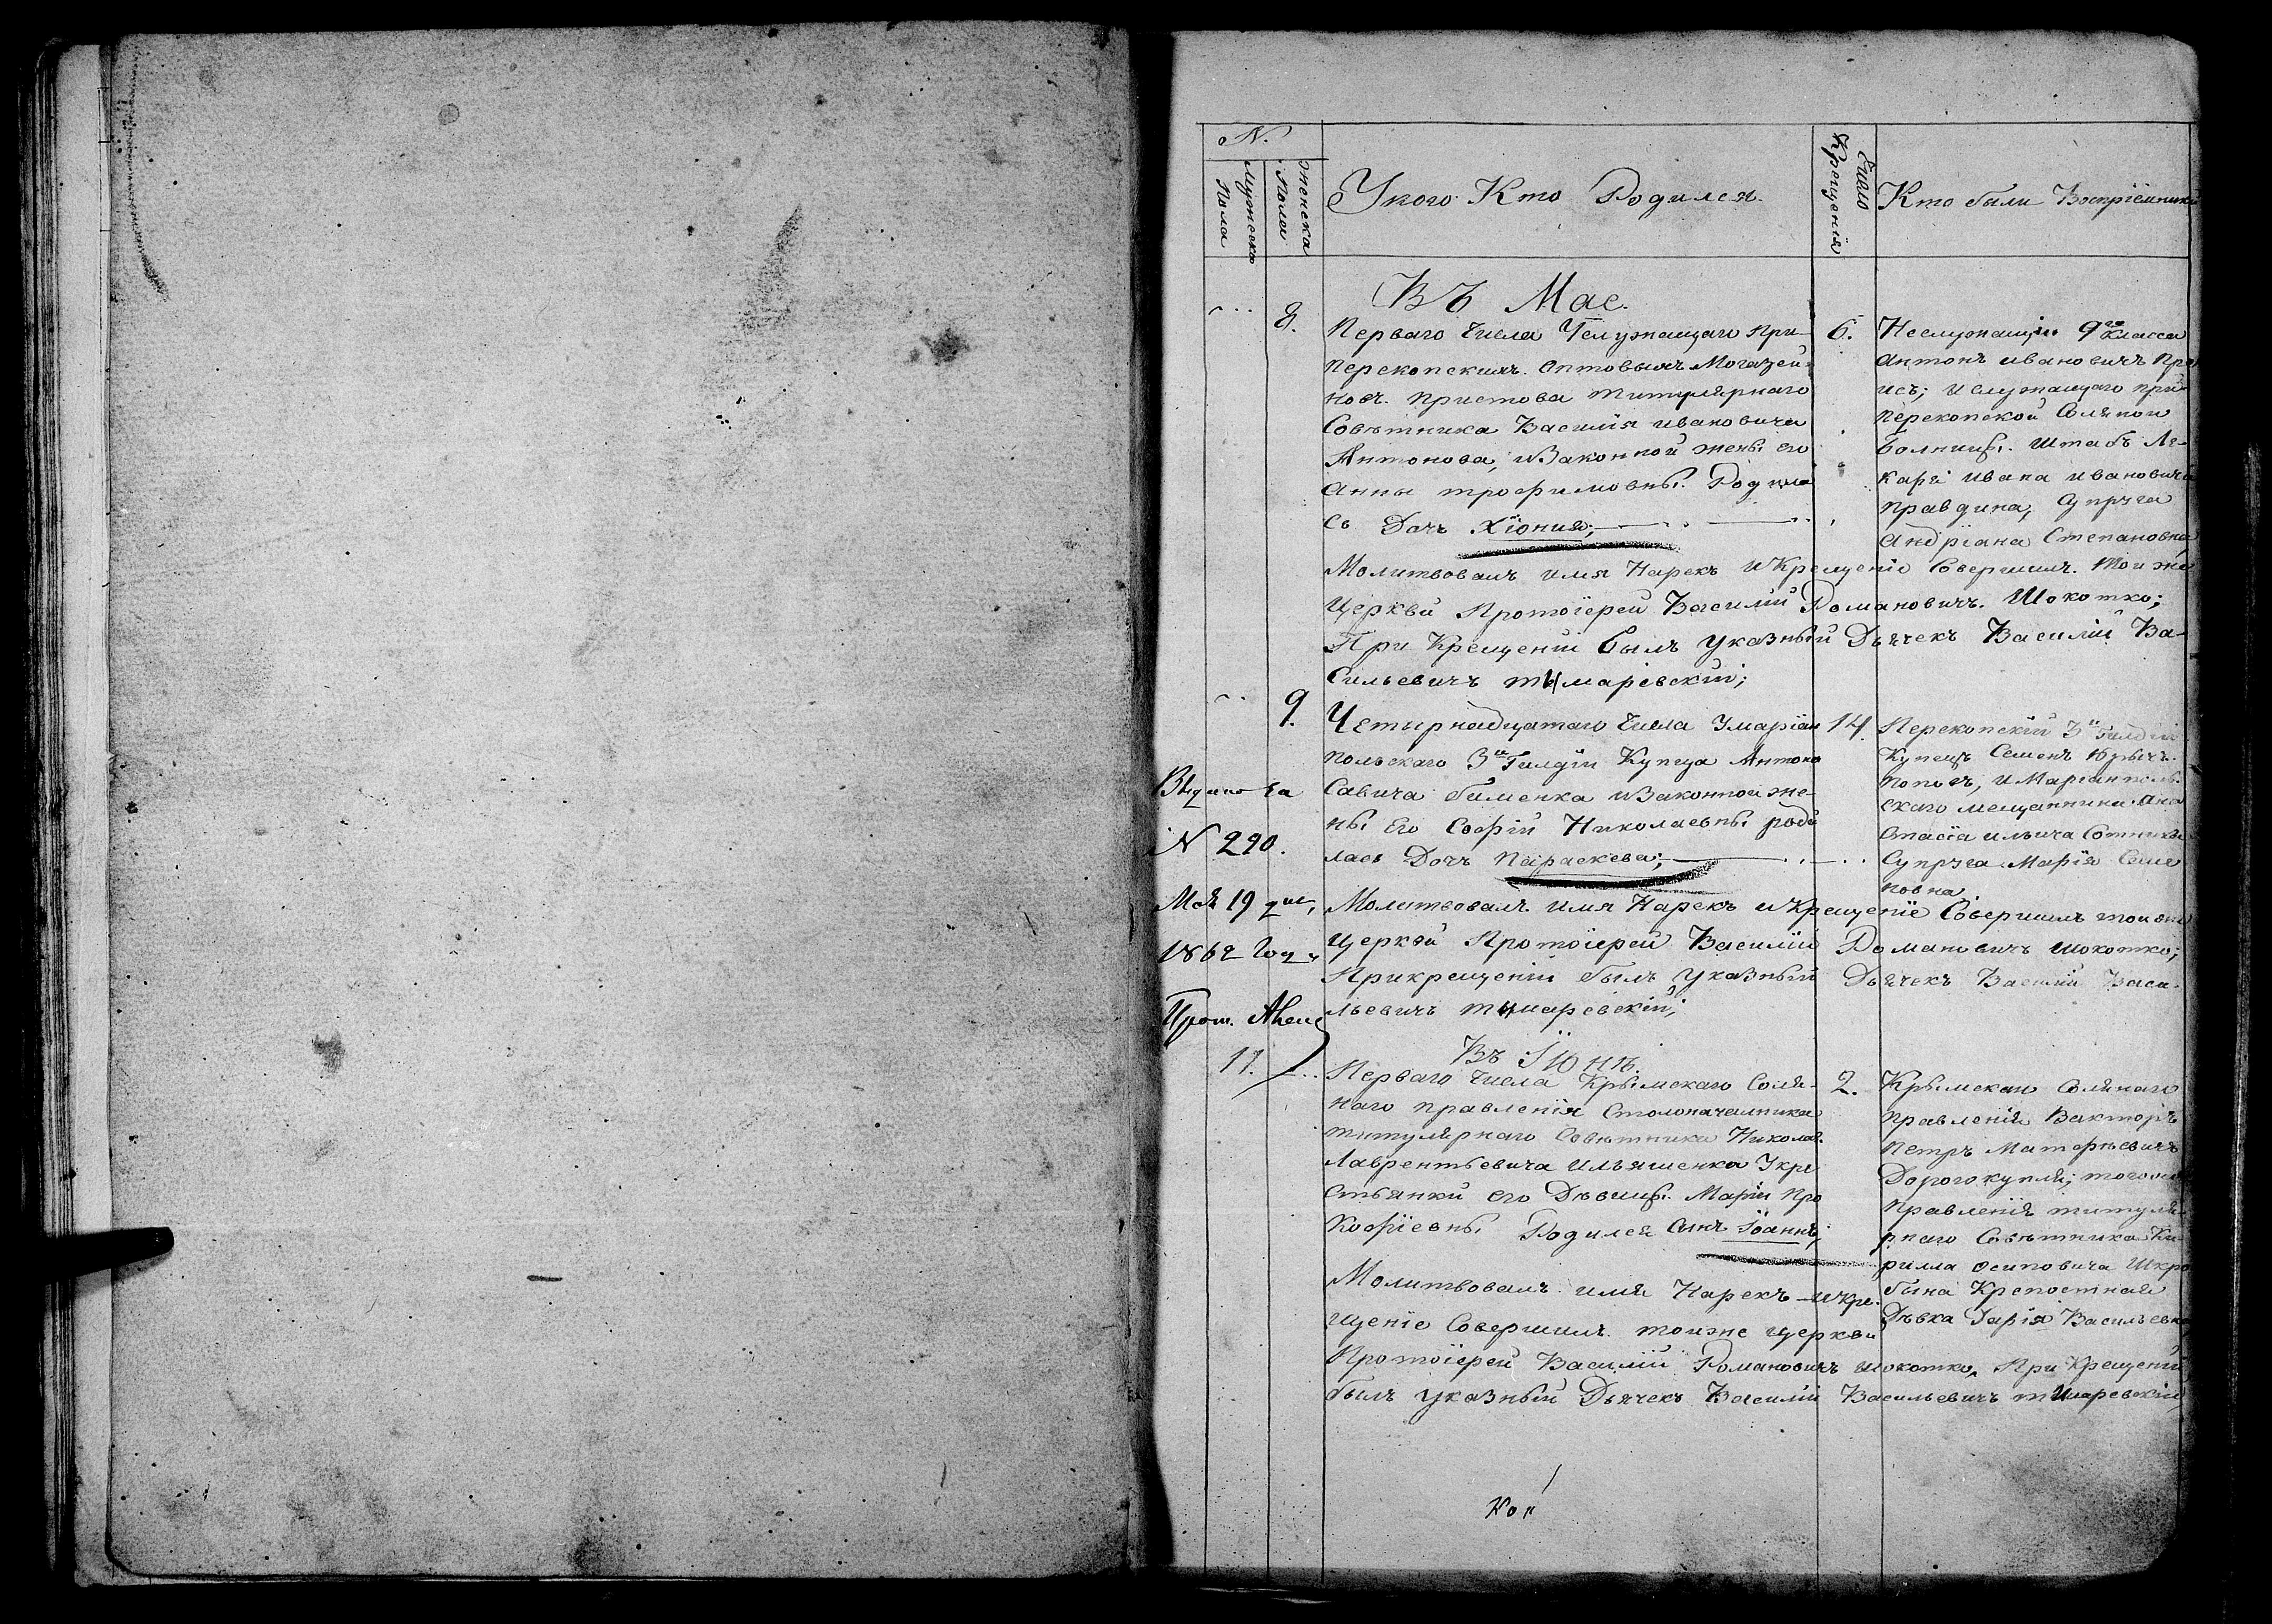 N.
Мужеска Пола
Женска Пола
У кого Кто Родился.
Число Крещенія
Кто были Воспріемники
Въ Мае.
8.
Перваго числа Услужащаго при
Перекопскихъ Оптовыхъ Могазей-
новъ пристова титулярнаго
Совѣтника Василія ивановича
Антонова, и Законной жены его
Анны трофимовны. Родила
сь Дочь Хіонія;
6.
Неслужащій 9го класса
Антонъ ивановичъ
исъ; и служащаго при
перекопской Соляной
Болницы. штабъ Ле-
каря ивана ивановича
правдина, супруга
Андріана Степановна
Молитвовалъ имя Нарекъ и Крещеніе Совершилъ. той же
Церкви Протоіерей Василій Романовичъ. Шокотко;
При Крещеніи былъ указный Дьячекъ Василій Ва-
сильевичъ тымаревскій;
9.
Четырнадцатаго числа У маріам
польскаго 3й Гилдіи Купца Антона
Савича биленка и Законной же-
ны Его Софіи Николаевны роди
лась Дочь параскева;
14.
Перекопскій 3й Гилдіи
Купецъ Семенъ
поповъ, и Маріанполь-
скаго мещанина Ана
стасіа ильича Сотник
Супруга Марія Семе
новна.
Молитвовалъ имя Нарекъ и Крещеніе Совершилъ той же
Церкви Протоіерей Василій Романовичъ шокотко;
При крещеніи былъ указный Дьячекъ Василій Васи-
льевичъ тымаревскій;
Выдано за
N 290.
Мая 19 дня,
1862 Года
Прот.
Въ Іюнѣ.
11.
Перваго числа Крымскаго Соля-
наго правленія Столоначалника
титулярнаго Совѣтника Николая
Лаврентьевича ильяшенка У кре
стьянки его Дѣвицы Маріи Про
кофіевны Родился сынъ Іоаннъ;
2.
Крымскаго солянаго
правленія
Петръ Матфѣевичъ
Дорогокупля; того же
правленія титуля-
рнаго Совѣтника Ки
рилла осиповича Шкро
бына Крепостная
Дѣвка Дарія Васильевна
Молитвовалъ имя Нарекъ и кре-
щеніе Совершилъ тойже церкви
Протоіерей Василій Романовичъ шокотко, При Крещеніи
былъ указный Дьячекъ Василій Васильевичъ тымаревскій,